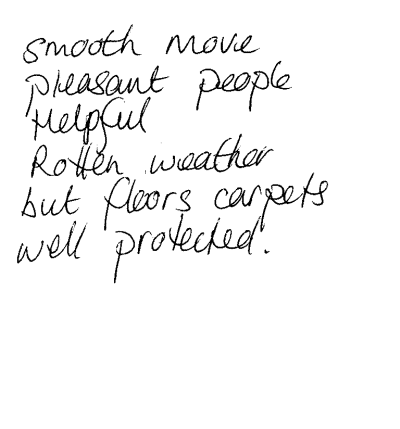 smooth move
pleasant people
Helpful
Rotten weather
but floors carpets
well protected.